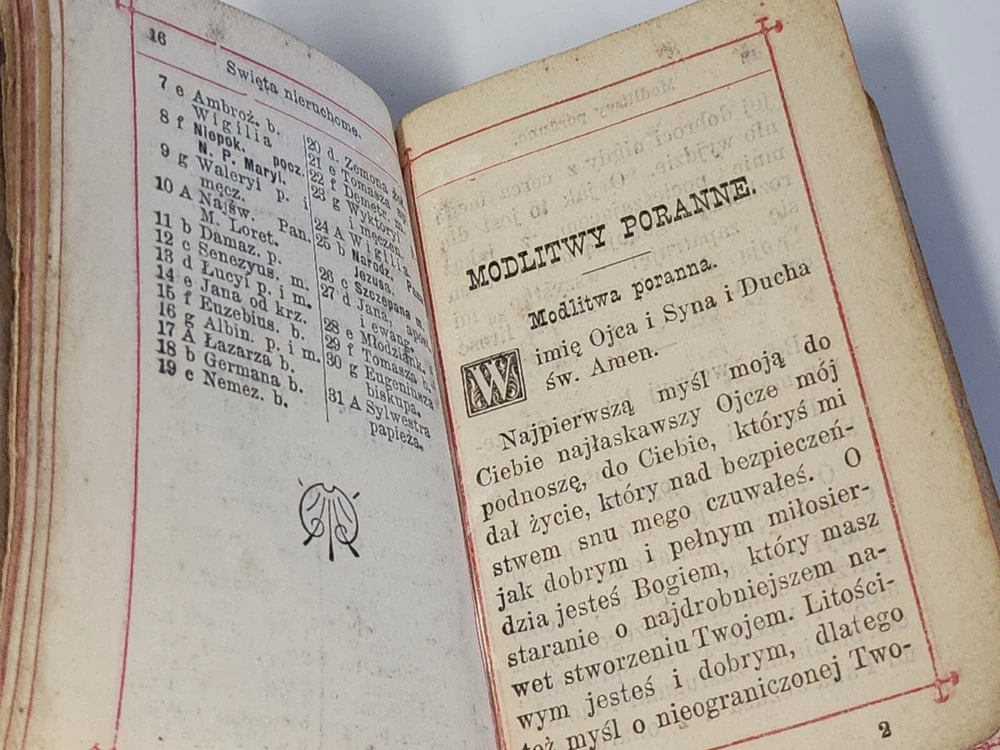 16
Swięta nieruchome.
7 e Ambroż. b.
Wigilia
8 f Niepok. pocz.
N. P. Maryi.
9 g Waleryi p. i
męcz.
10 A Najśw. Pan.
M. Loret.
11 b Damaz. p.
12 c Senezyus. m.
13 d Łucyi p. i m.
14 e Jana od krz.
15 f Euzebius. b.
16 g Albin. p. i m.
17 A Łazarza b.
18 b Germana b.
19 c Nemez. b.
20 d. Zemona żoł.
21 e Tomasza
22 f Demetr. m.
23 g Wyktoryi
i męczen.
24 A Wigilia.
25 b Narodz. Pana
Jezusa.
26 c Szczepana m.
27 d Jana, apost.
i ewang.
28 e Młodziank.
29 f Tomasza b.
30 g Eugeniusza
biskupa.
31 A Sylwestra
papieża.
MODLITWY PORANNE.
Modlitwa poranna.
W imię Ojca i Syna i Ducha
św. Amen.
Najpierwszą myśl moją do
Ciebie najłaskawszy Ojcze mój
podnoszę, do Ciebie, któryś mi
dał życie, który nad bezpieczeń-
stwem snu mego czuwałeś. O
jak dobrym i pełnym miłosier-
dzia jesteś Bogiem, który masz
staranie o najdrobniejszem na-
wet stworzeniu Twojem. Litości-
wym jesteś i dobrym, dlatego
też myśl o nieograniczonej Two-
2